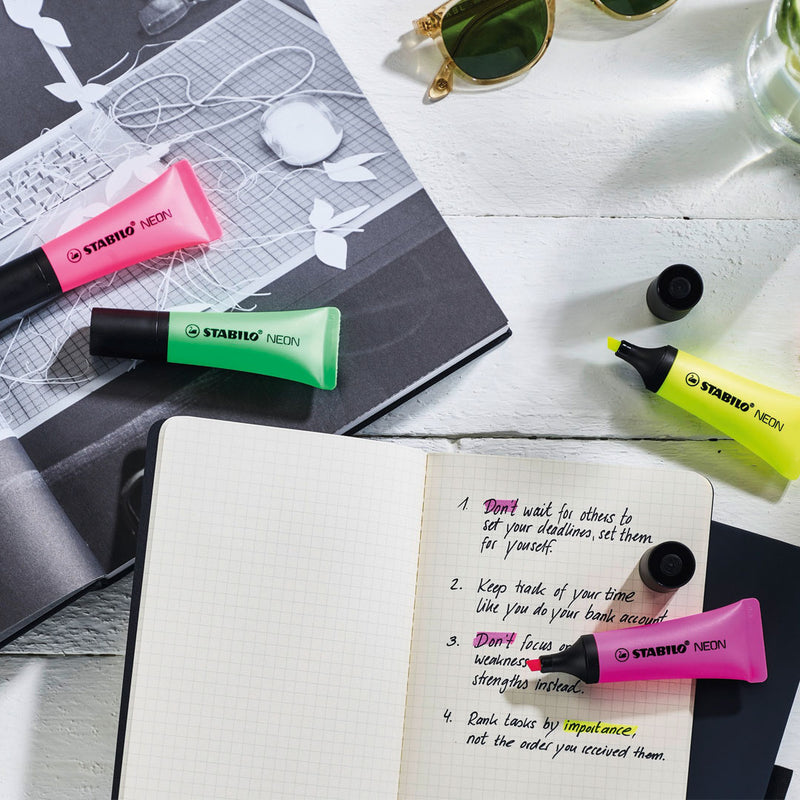 STABILO® NEON
STABILO® NEON
STABILO® NEON
1. Don't wait for others to
set your deadlines, set them
for youself.
2. Keep track of your time
like you do your bank account
3. Don't focus on
weakness
STABILO® NEON
strengths instead.
4. Rank tasks by importance,
not the order you received them.